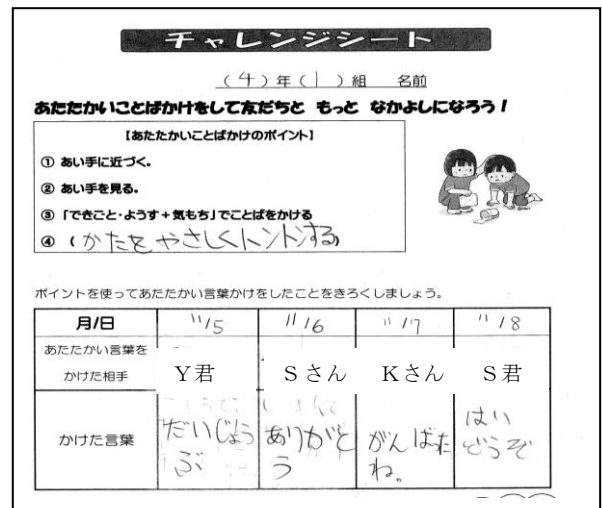 チャレンジシート
(4)年(1)組 名前
あたたかいことばかけをして友だちと もっと なかよしになろう!
【あたたかいことばかけのポイント】
① あい手に近づく。
② あい手を見る。
③ 「できごと・ようす+気もち」でことばをかける
④ (かたをやさしくトントンする)
ポイントを使ってあたたかい言葉かけをしたことをきろくしましょう。
月/日 11/5 11/6 11/7 11/8
あたたかい言葉をかけた相手 Y君 Sさん Kさん S君
かけた言葉 だいじょうぶ ありがとう がんばたね。 はいどうぞ